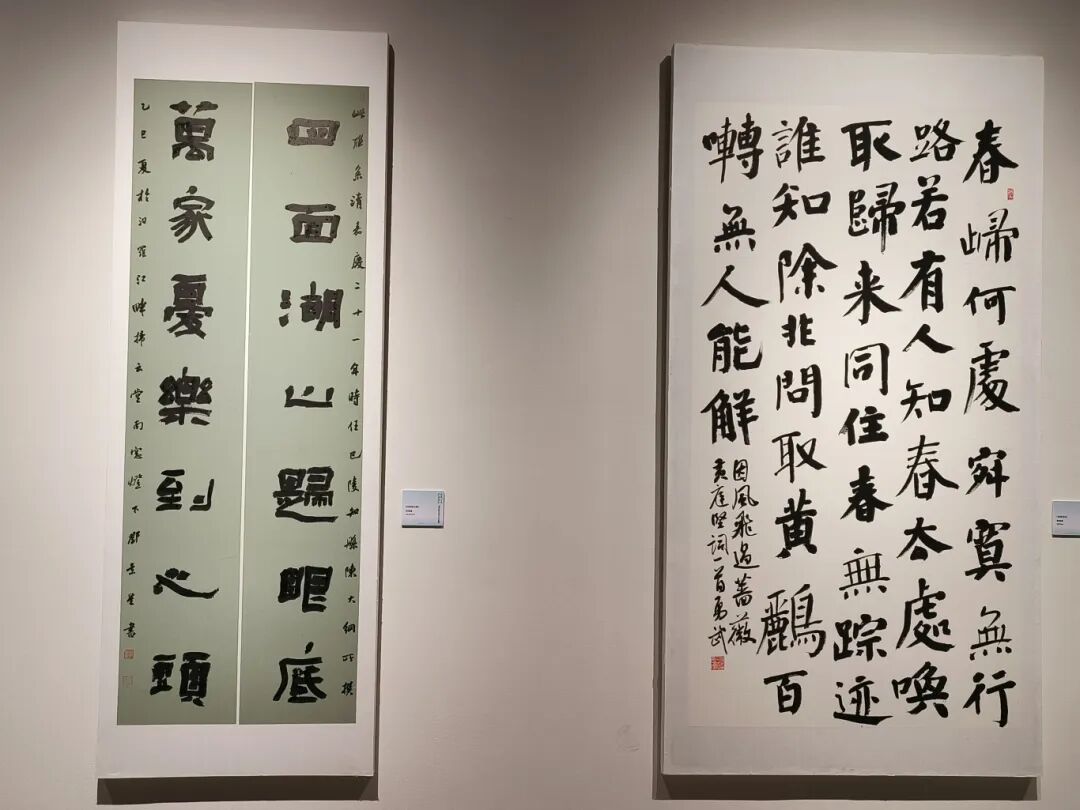 此联系清嘉慶二十一年時任巴陵知縣陳大綱所撰
四面湖山歸眼底
萬家憂樂到心頭
乙巳夏於汨羅江畔云堂雨窓燈下鄧書
春歸何處寂寞無行
路若有人知春去處喚
取歸来同住春無踪迹
誰知除非問取黄鸝百
囀無人能解
因風飛過薔薇
黄庭堅詞一首勇武